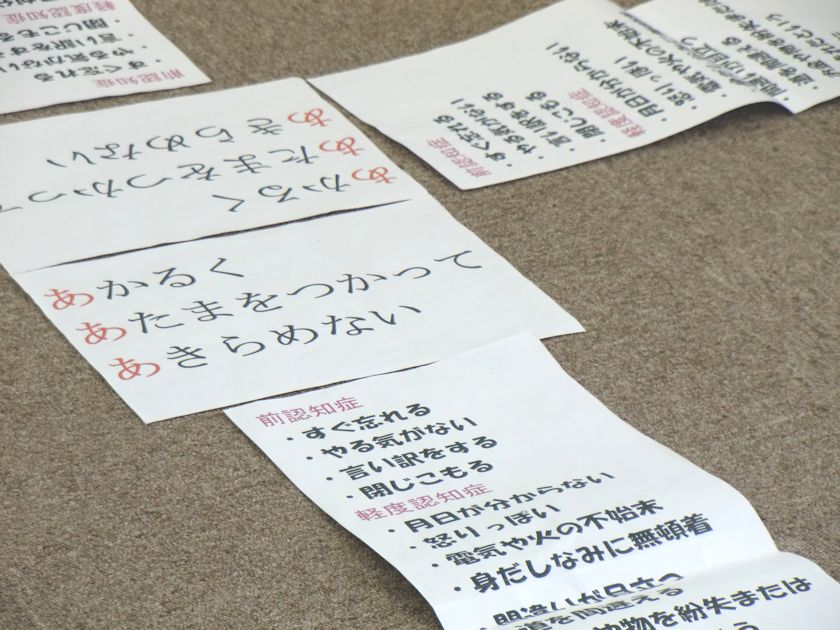 前認知症
・すぐ忘れる
・やる気がない
・言い訳をする
・閉じこもる
軽度認知症
前認知症
・すぐ忘れる
・やる気がない
・言い訳をする
・閉じこもる
軽度認知症
・月日が分からない
・怒りっぽい
・電気や火の不始末
・間違いが目立つ
・道を間違える
あかるく
あたまをつかって
あきらめない
あかるく
あたまをつかって
あきらめない
前認知症
・すぐ忘れる
・やる気がない
・言い訳をする
・閉じこもる
軽度認知症
・月日が分からない
・怒りっぽい
・電気や火の不始末
・身だしなみに無頓着
・間違いが目立つ
道を間違える
物を紛失または